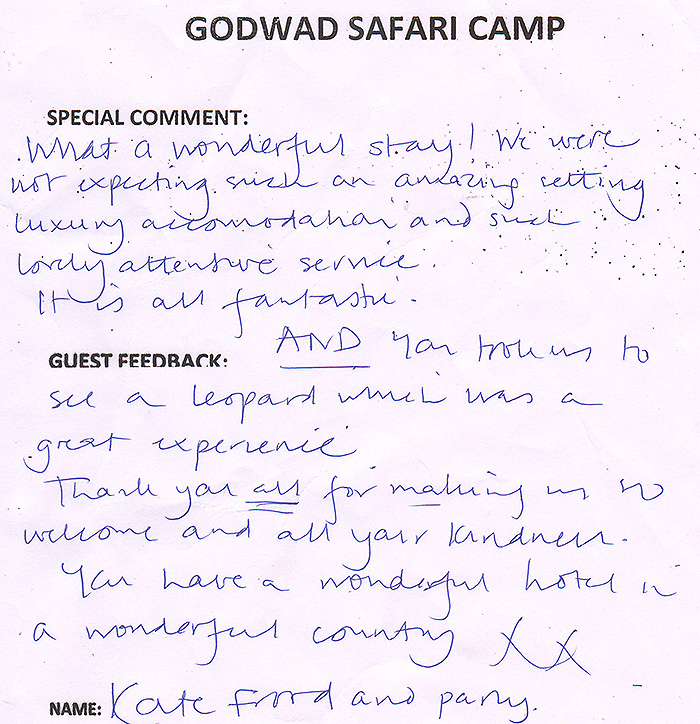 GODWAD SAFARI CAMP
SPECIAL COMMENT:
What a wonderful stay! We were
not expecting such an amazing setting
luxury accomodation and such
lovely attentive service.
It is all fantastic.
AND you took us to
GUEST FEEDBACK:
see a leopard which was a
great experience
Thank you all for making us so
welcome and all your kindness.
You have a wonderful hotel in
a wonderful country XX
NAME: Kate and party.